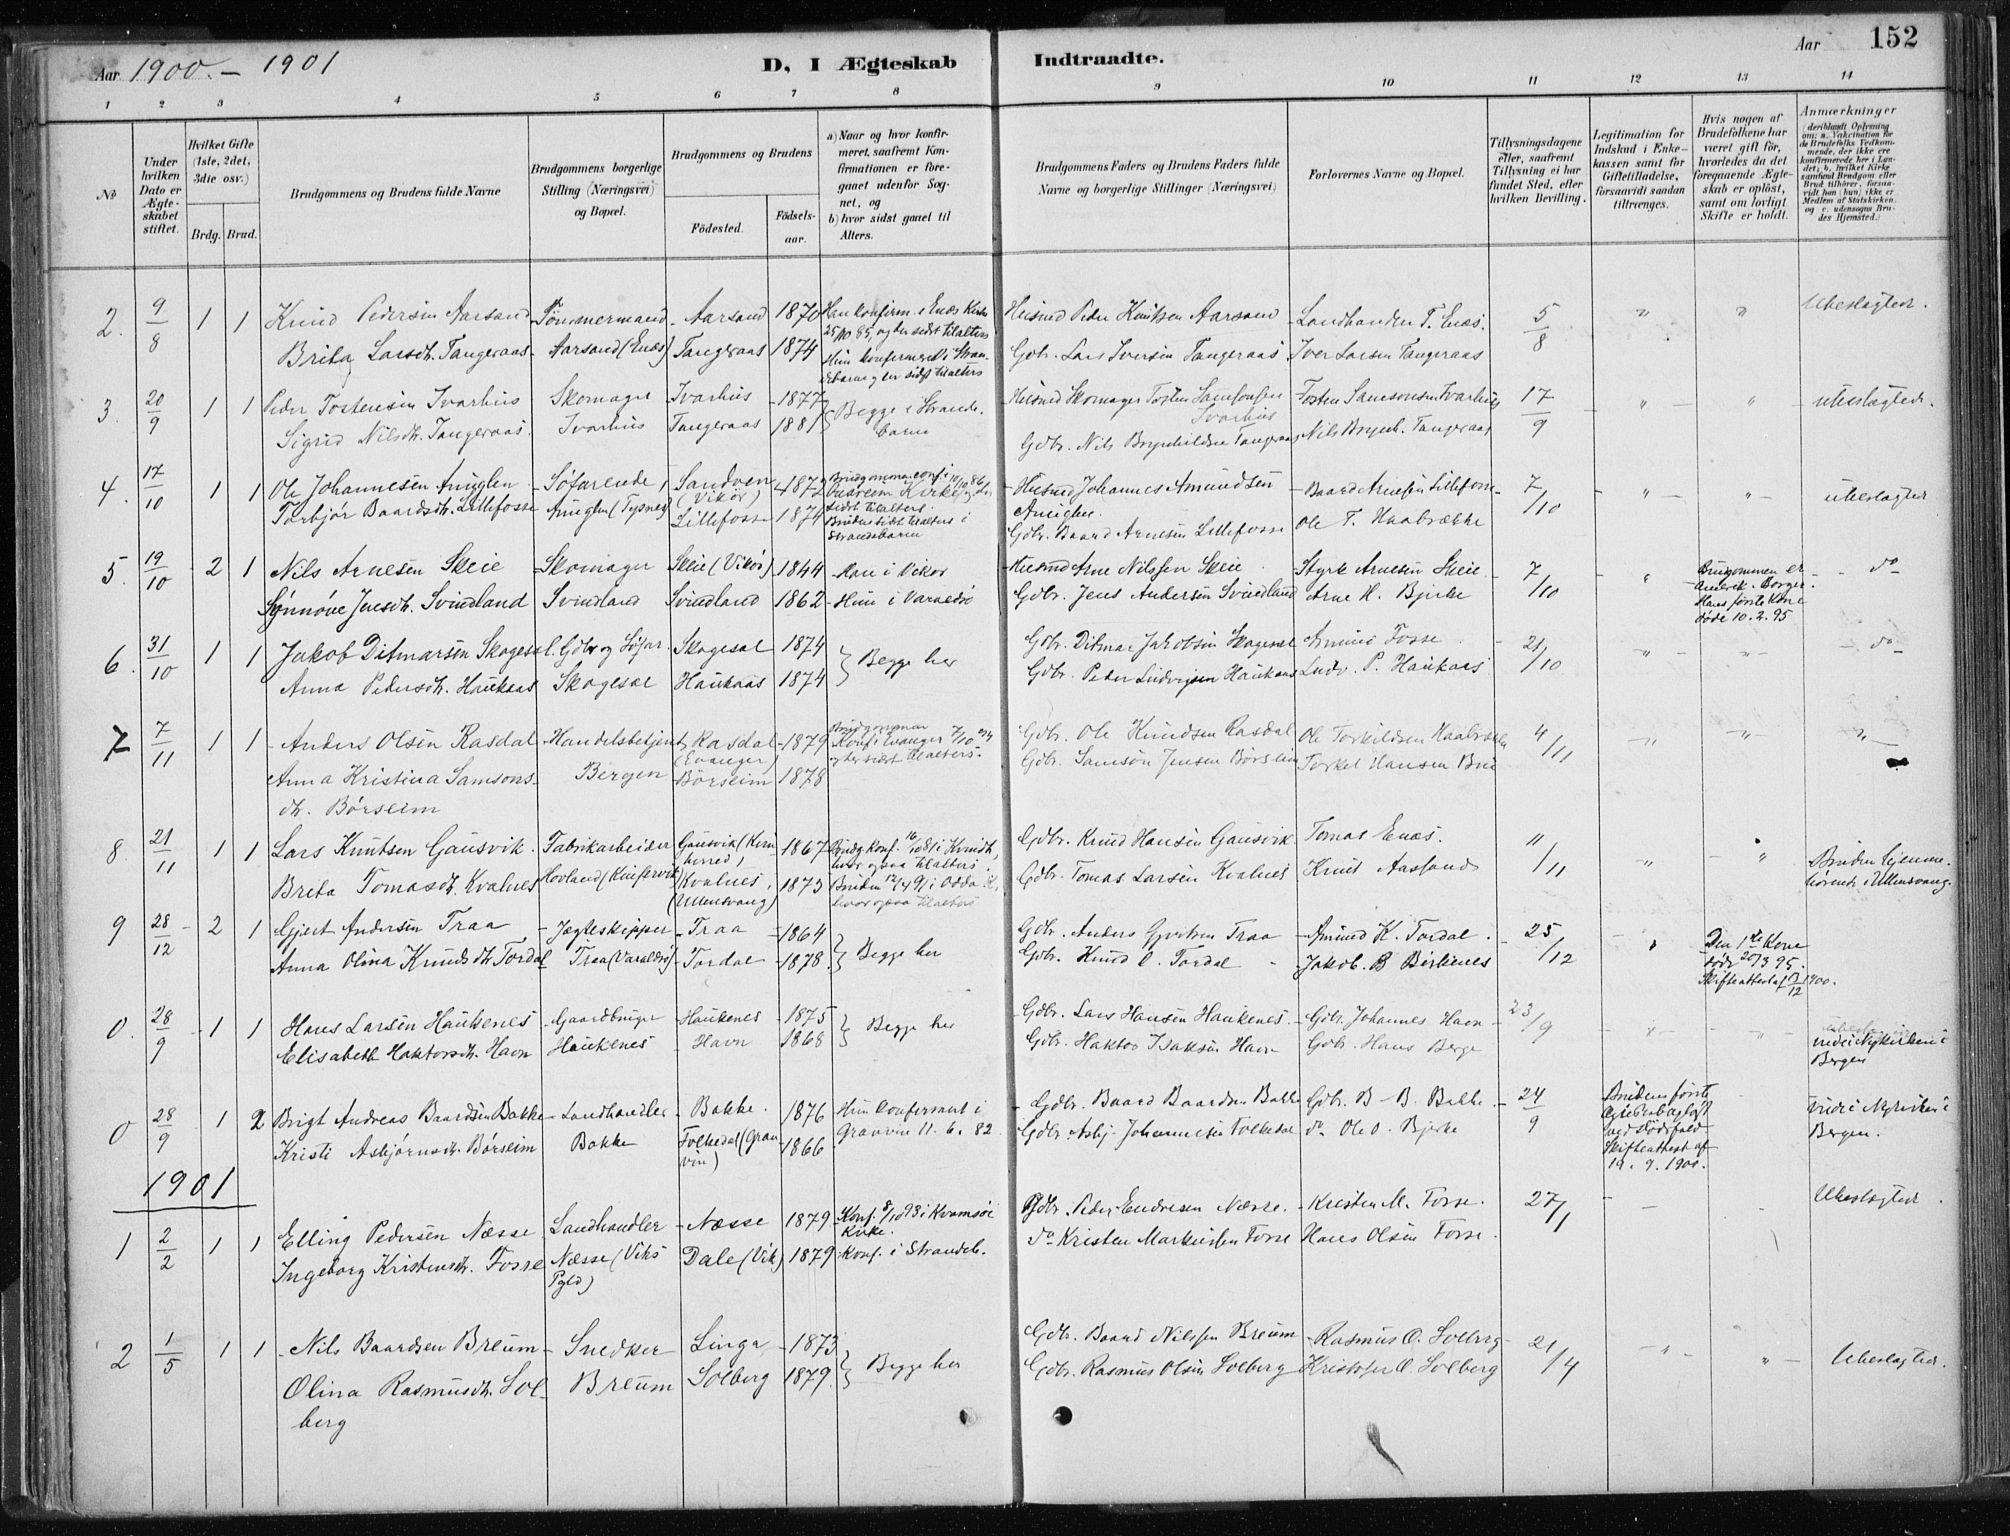 Aar 1900. - 1901
D, I Ægteskab Indtraadte.
Aar 152
1 2 3 4 5 6 7 8 9 10 11 12 13 14
No
Under hvilken Dato er Ægteskabet stiftet.
Hvilket Gifte (1ste, 2det, 3die osv.)
Brdg. Brud.
Brudgommens og Brudens fulde Navne
Brudgommens borgerlige Stilling (Næringsvei) og Bopæl.
Brudgommens og Brudens
Fødested.
Fødselsaar.
a) Naar og hvor konfirmeret, saafremt Konfirmationen er foregaaet udenfor Sognet, og
b) hvor sidst gaaet til Alters.
Brudgommens Faders og Brudens Faders fulde Navne og borgerlige Stillinger (Næringsvei)
Forlovernes Navne og Bopæl.
Tillysningsdagene eller, saafremt Tillysning ei har fundet Sted, efter hvilken Bevilling.
Legitimation for Indskud i Enkekassen samt for Giftetilladelse, forsaavidt saadan tiltrænges.
Hvis nogen af Brudefolkene har været gift før, hvorledes da det foregaaende Ægteskab er opløst, samt om lovligt Skifte er holdt.
Anmærkninger (deriblandt Oplysning om: a. Vakcination for de Brudefolks Vedkommende, der ikke ere konfirmerede her i Landet; b. hvilket Kirkesamfund Brudgom eller Brud tilhører, forsaavidt han (hun) ikke er Medlem af Statskirken, og c. udensogns Brudes Hjemsted.)
2. 9/8 1 1 Knud Pedersen Aarsand Tømmermand Aarsand 1870 Han konfirm. i Enæs Kirke 25/10 85, og her sidst til alters Husmd Peder Knutsen Aarsand Landhandler T. Enæs. 5/8 " " Ubeslægtede.
Brita Larsdtr. Tangeraas Aarsand (Enæs) Tangeraas 1874 Hun konfirmered i Strandebarm og her sidst til alters Gbr. Lars Iversen Tangeraas Iver Larsen Tangeraas
3. 20/9 1 1 Peder Tostensen Ivarhus Skomager Ivarhus 1877 Begge i Strandebarm Husmd Skomager Tosten Samsonsen Ivarhus Tosten Samsonsen Ivarhus 17/9 " " ubeslægtede.
Sigrid Nilsdtr. Tangeraas. Ivarhus Tangeraas 1881 Gdbr. Nils Brynhildsen Tangeraas Nils Brynh. Tangeraas
4. 17/10 1 1 Ole Johannesen Anuglen Søfarende Sandven (Vikør) 1872 Brudgommen conf. i Kirke og der sidst til alters. Husmd Johannes Amundsen Anuglen. Baard Arnesen Lillefosse 7/10 " " ubeslægtede
Torbjør Baardsdtr. Lillefosse Anuglen (Tysnes) Lillefosse 1874 Bruden sidst til alters i Strandebarm Gdbr. Baard Arnesen Lillefosse Ole T. Haabrække
5. 19/10 2 1 Nils Arnesen Skeie Skomager Skeie (Vikør) 1844 Han i Vikør Husmd Arne Nilssen Skeie Styrk Arnesen Skeie 7/10 " Brudgommen er Hans første Kone døde 10.2.95 do
Synnøve Jensdtr. Svindland Svindland Svindland 1862 Hun i Varaldsø Gdbr. Jens Andersen Svindland Arne H. Bjerke
6. 31/10 1 1 Jakob Ditmarsen Skogesal Gdbr og Søfar. Skogesal 1874 Begge her Gdbr. Ditmar Jakobsen Skogesal Amund Fosse 21/10 " " do
Anna Pedersdtr. Haukaas Skogesal Haukaas 1874 Gdbr. Peder Ludvigsen Haukaas Ludv. P. Haukaas
7 7/11 1 1 Anders Olsen Rasdal Handelsbetjent Rasdal (Evanger) 1879 Brudgommen Konf. i Evanger og her sidst til alters. Gdbr. Ole Knudsen Rasdal Ole Torkildsen Haabrække 4/11 " " "
Anna Kristina Samsonsdtr. Børseim Bergen Børseim 1878 Gdbr. Samson Jensen Børseim Torkel Hansen Brei
8. 21/11 1 1 Lars Knutsen Gausvik. Fabrikarbeider Gausvik (Kvinherred) 1867 Brudg. konf. 16/10 81 i Kvindh, hvor ogsaa til alters Gdbr. Knud Hansen Gausvik. Tomas Enæs. 11/11 " " Bruden hjemmehørende i Ullensvang.
Brita Tomasdtr. Kvalnes Hovland Kvalnes, (Ullensvang) 1873 Bruden 12/4 91 i Odda K. hvor ogsaa til alters Gdbr. Tomas Larsen Kvalnes Knut Aarsand
9 28/12 2 1 Gjert Andersen Traa Jægteskipper Traa 1864 Begge her Gdbr. Anders Gjertsen Traa Amund K. Tordal. 25/12 " Den 1ste Kone døde 20/3 95. Skifteattest af 12 1900.
Anna Olina Knudsdtr. Tordal Traa (Varaldsø) Tordal 1878. Gdbr. Knud O. Tordal Jakob B Birkenes
0. 28/9 1 1 Hans Larsen Haukenes Gaardbruger Haukenes 1875 Begge her Gdbr. Lars Hansen Haukenes Gdbr. Johannes Havn 23/9 " " viede i Nykirken i Bergen
Elisabeth Haktorsdtr. Havn Haukenes Havn 1868 Gdbr. Haktor Isaksen Havn Gdbr. Hans Berge
0 28/9 1 2 Brigt Andreas Baardsen Bakke Landhandler Bakke. 1876 Hun konfirmert i Graven 11. 6. 82. Gdbr. Baard Baardsen Bakke Gdbr. B. B. Bakke 24/9 Brudens første Ægteskab opløst ved Dødsfald Skifteattest af 19. 9. 1900. Viede i Nykirken i Bergen.
Kristi Asbjørnsdtr. Børseim Bakke Folkedal (Graven) 1866 Gdbr. Asbj. Johannesen Folkedal do Ole O. Bjerke
1901
1 2/2 1 1 Elling Pedersen Næsse Landhandler Næsse 1879 Konf. 8/10 93 i Kvamsøi Kirke. Gdbr. Peder Endresen Næsse. Kristen M. Fosse. 27/1 Ubeslægtede.
Ingeborg Kristensdtr. Fosse Næsse (Viks Pgld) Dale (Vik) 1879 Konf. i Strandeb. do Kristen Markussen Fosse Hans Olsen Fosse.
2 1/5 1 1 Nils Baardsen Breum Snedker Linga 1873 Begge her Gdbr. Baard Nilssen Breum Rasmus O. Solberg 21/4 " " Ubeslægtede.
Olina Rasmusdtr. Solberg Breum Solberg 1879. Gdbr. Rasmus Olsen Solberg Kristofer O. Solberg